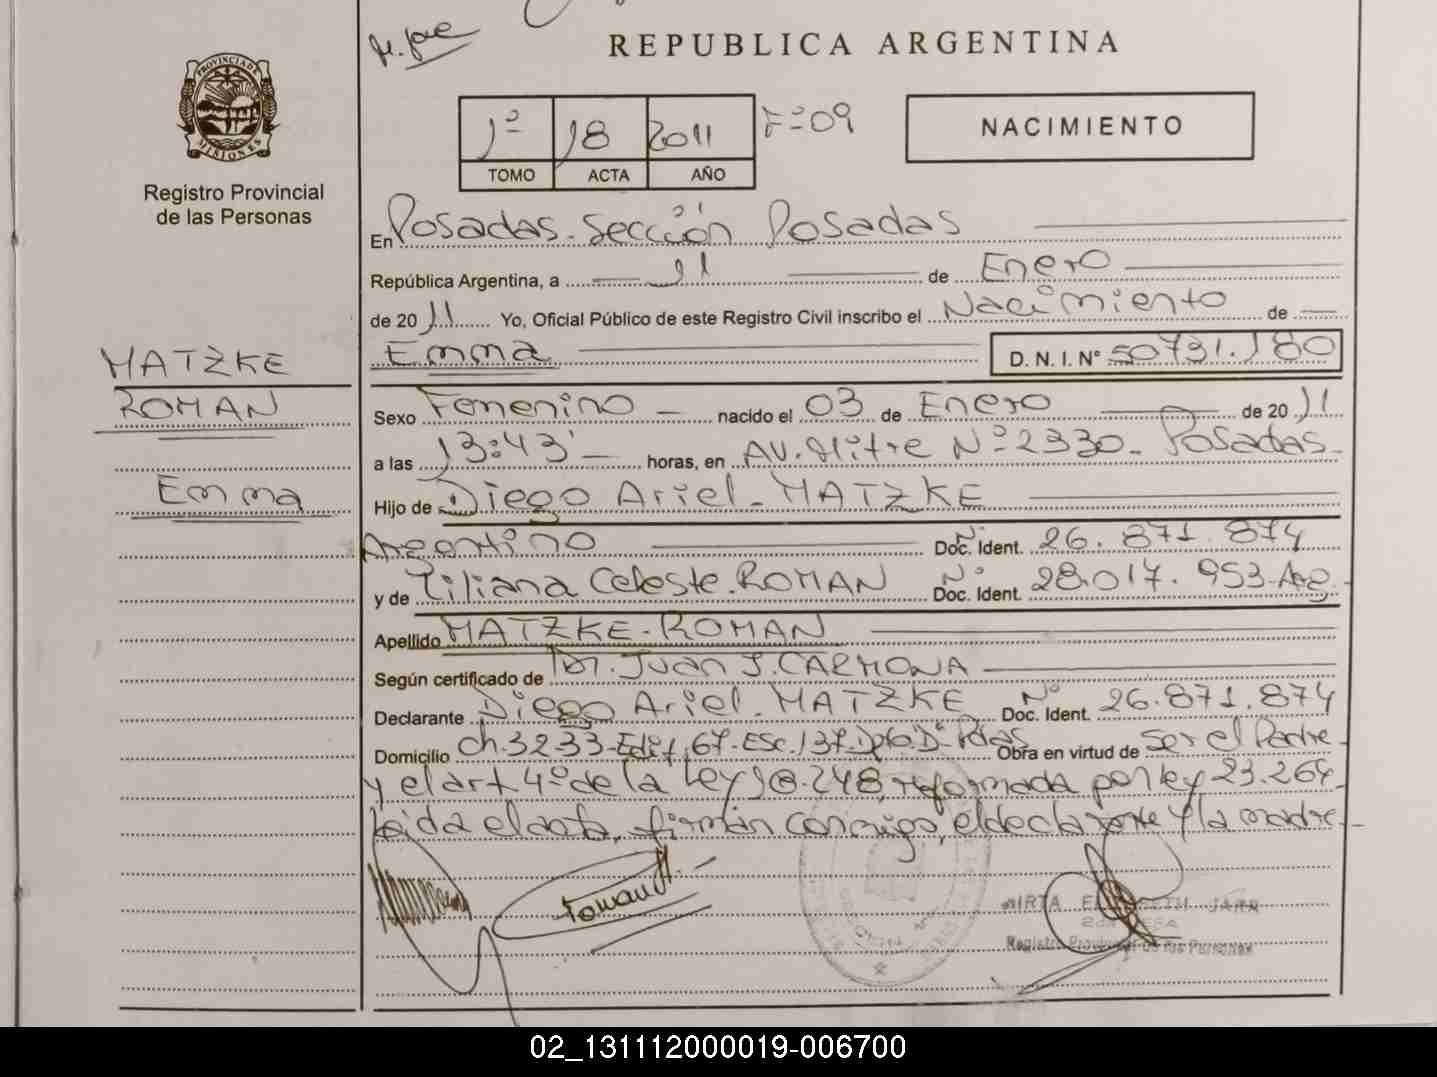 REPUBLICA ARGENTINA
PROVINCIA DE
MISIONES
Registro Provincial
de las Personas
1º 18 2011 Fº09
TOMO ACTA AÑO
NACIMIENTO
En Posadas. Sección Posadas
República Argentina, a 11 de Enero
de 2011 Yo, Oficial Público de este Registro Civil inscribo el Nacimiento de
Emma D. N. I. Nº 50731.180
MATZKE
ROMAN
Emma
Sexo Femenino nacido el 03 de Enero de 2011
a las 13:43' horas, en AV. Mitre Nº 2330 - Posadas
Hijo de Diego Ariel - MATZKE
Argentino Nº Doc. Ident. 26.871.874
y de Liliana Celeste. ROMAN Nº Doc. Ident. 28.017.953-Arg.
Apellido MATZKE-ROMAN
Según certificado de Dr. Juan J. CARMONA
Declarante Diego Ariel - MATZKE Nº Doc. Ident. 26.871.874
Domicilio Ch.32-33-Edif. 67-Esc. 137-Dpto. D- Pdas Obra en virtud de ser el Padre
y el art 4º de la Ley 18.248, reformada por ley 23.264
leida el acta, firman conmigo, el declarante y la madre
Roman
MIRTA
Registro Provincial de las Personas
02_131112000019-006700